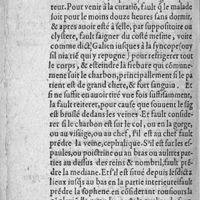 teur. Pour venir à la curatiō, fault q̄ le malade
soit pour le moins douze heures sans dormir,
& apres auoir esté à selle, par suppositoire ou
clystere, fault saigner du costé mesme, voire
comme dict Galien iusques à la syncope (ouy
s'il n'a riē qui y repugne) pour refrigerer tout
le corps, & esteindre la fiebure qui commune-
ment suit le charbon, principallement si le pa
tient est de grand chiere, & fort sanguin. Et
si ne suffit en auoir tiré vne fois abondammēt,
la fault reiterer, pour cause que souuent le sāg
est bruslé dedans les veines. Et fault conside-
rer si le charbon est sur le col, ou en la gorge,
ou au visaige, ou au chef, s'il est au chef fault
prēdre la veine, cephalique. S'il est sur les es-
paules, ou poictrine ou au bras, ou aultres par-
ties au dessus des reins & nombril, fault prē-
dre la mediane. Et s'il est situé depuis lesdictz
lieux iusqs au bas en la partie interieure fault
prēdre la sophene en considerant tousiours la